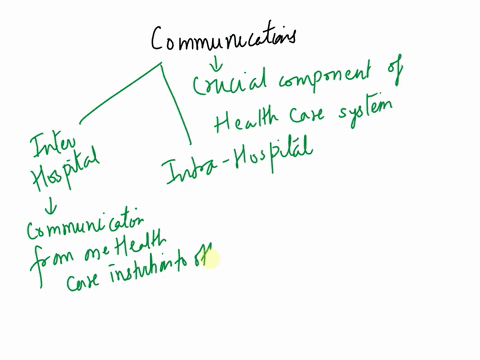 Communications
Crucial component of
Health Care system
Inter
Hospital
Intra-Hospital
Communication
from one Health
Care instution to of